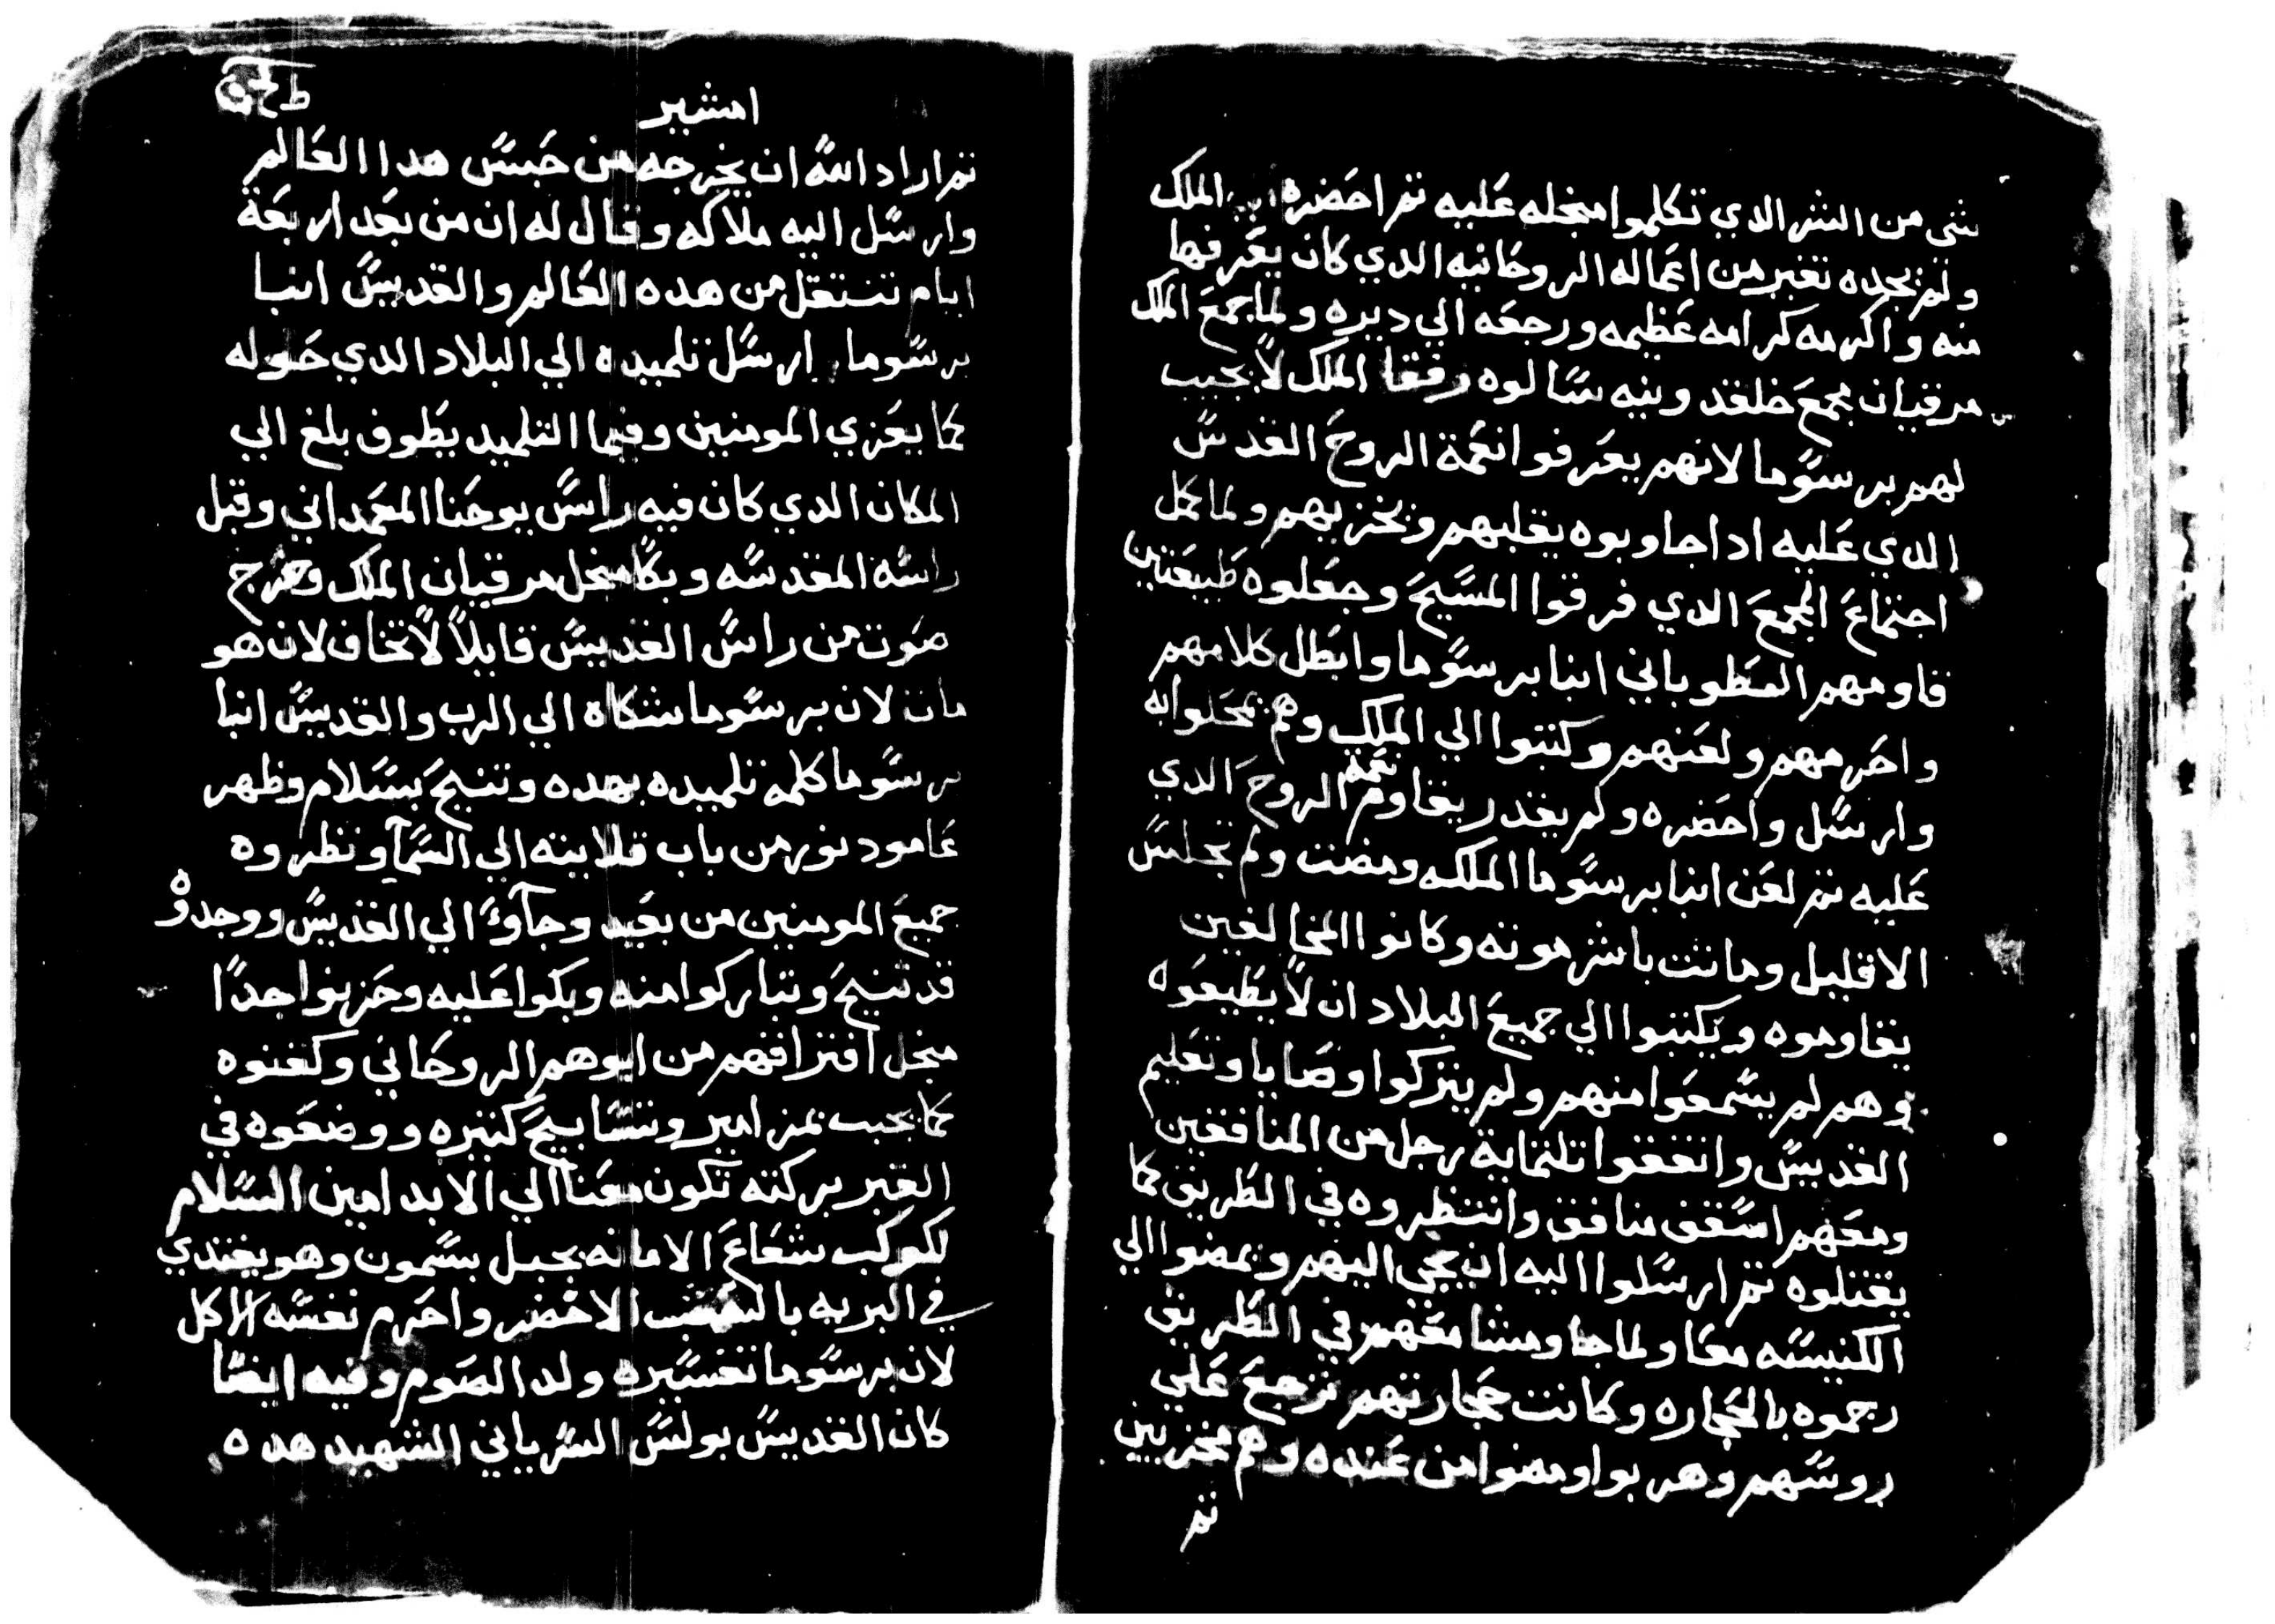 شي من الشر الدي تكلموا منجله عليه تم احضره الملك
ولم يجده تغير من اعماله الروحانيه الدي كان يعرفها
منه واكرمه كرامه عظيمه ورجعه الي ديره ولما جمع الملك
مرقيان مجمع خلقدونيه سالوه رفقا الملك لا يجيب
لهم برسوما لانهم يعرفوا نعمة الروح القدس
الدي عليه ادا جاوبوه يغلبهم ويخزيهم ولما كمل
اجتماع المجمع الدي فرقوا المسيح وجعلوه طبيعتين
قاومهم الطوباني انبا برسوما وابطل كلامهم
واحرمهم ولعنهم وكتبوا الي الملك وهم يمحلوا به
وارسل واحضره ولم يقدر يقاوم نعمة الروح الدي
عليه تم لعن انبا برسوما الملكه ومضت ولم تجلس
الا قليل وماتت باشر موته وكانوا المخالفين
يقاوموه ويكتبوا الي جميع البلاد ان لا يطيعوه
وهم لم يسمعوا منهم ولم يتركوا وصايا وتعليم
القديس واتفقوا تلتماية رجل من المنافقين
ومعهم اسقف منافق وانتظروه في الطريق كما
يقتلوه تم ارسلوا اليه ان يجي اليهم ويمضوا الي
الكنيسه معا ولما جا ومشا معهم في الطريق
رجموه بالحجاره وكانت حجارتهم ترجع علي
روسهم وهربوا ومضوا من عنده وهم مخزيين
تم
امشير
تم اراد الله ان يخرجه من حبس هدا العالم
وارسل اليه ملاكه وقال له ان من بعد اربعة
ايام تنتقل من هده العالم والقديس انبا
برسوما ارسل تلميده الي البلاد الدي حوله
كما يعزي المومنين وفيما التلميد يطوف بلغ الي
المكان الدي كان فيه راس يوحنا المعمداني وقبل
راسه المقدسه وبكا منجل مرقيان الملك وخرج
صوت من راس القديس قايلا لا تخاف لان هو
مات لان برسوما شكاه الي الرب والقديس انبا
برسوما كلم تلميده بهده وتنيح بسلام وظهر
عامود نور من باب قلايته الي السما ونظروه
جميع المومنين من بعيد وجاوا الي القديس ووجدوه
قد تنيح وتباركوا منه وبكوا عليه وحزنوا جدا
منجل افتراقهم من ابوهم الروحاني وكفنوه
كما يجب بمزامير وتسابيح كتيره ووضعوه في
القبر بركته تكون معنا الي الابد امين السلام
لكوكب شعاع الامانه بجبل سمون وهو يغتدي
في البريه بالعشب الاخضر واحرم نفسه الاكل
لان برسوما تفسيره ولد الصوم وفيه ايضا
كان القديس بولس السرياني الشهيد هده